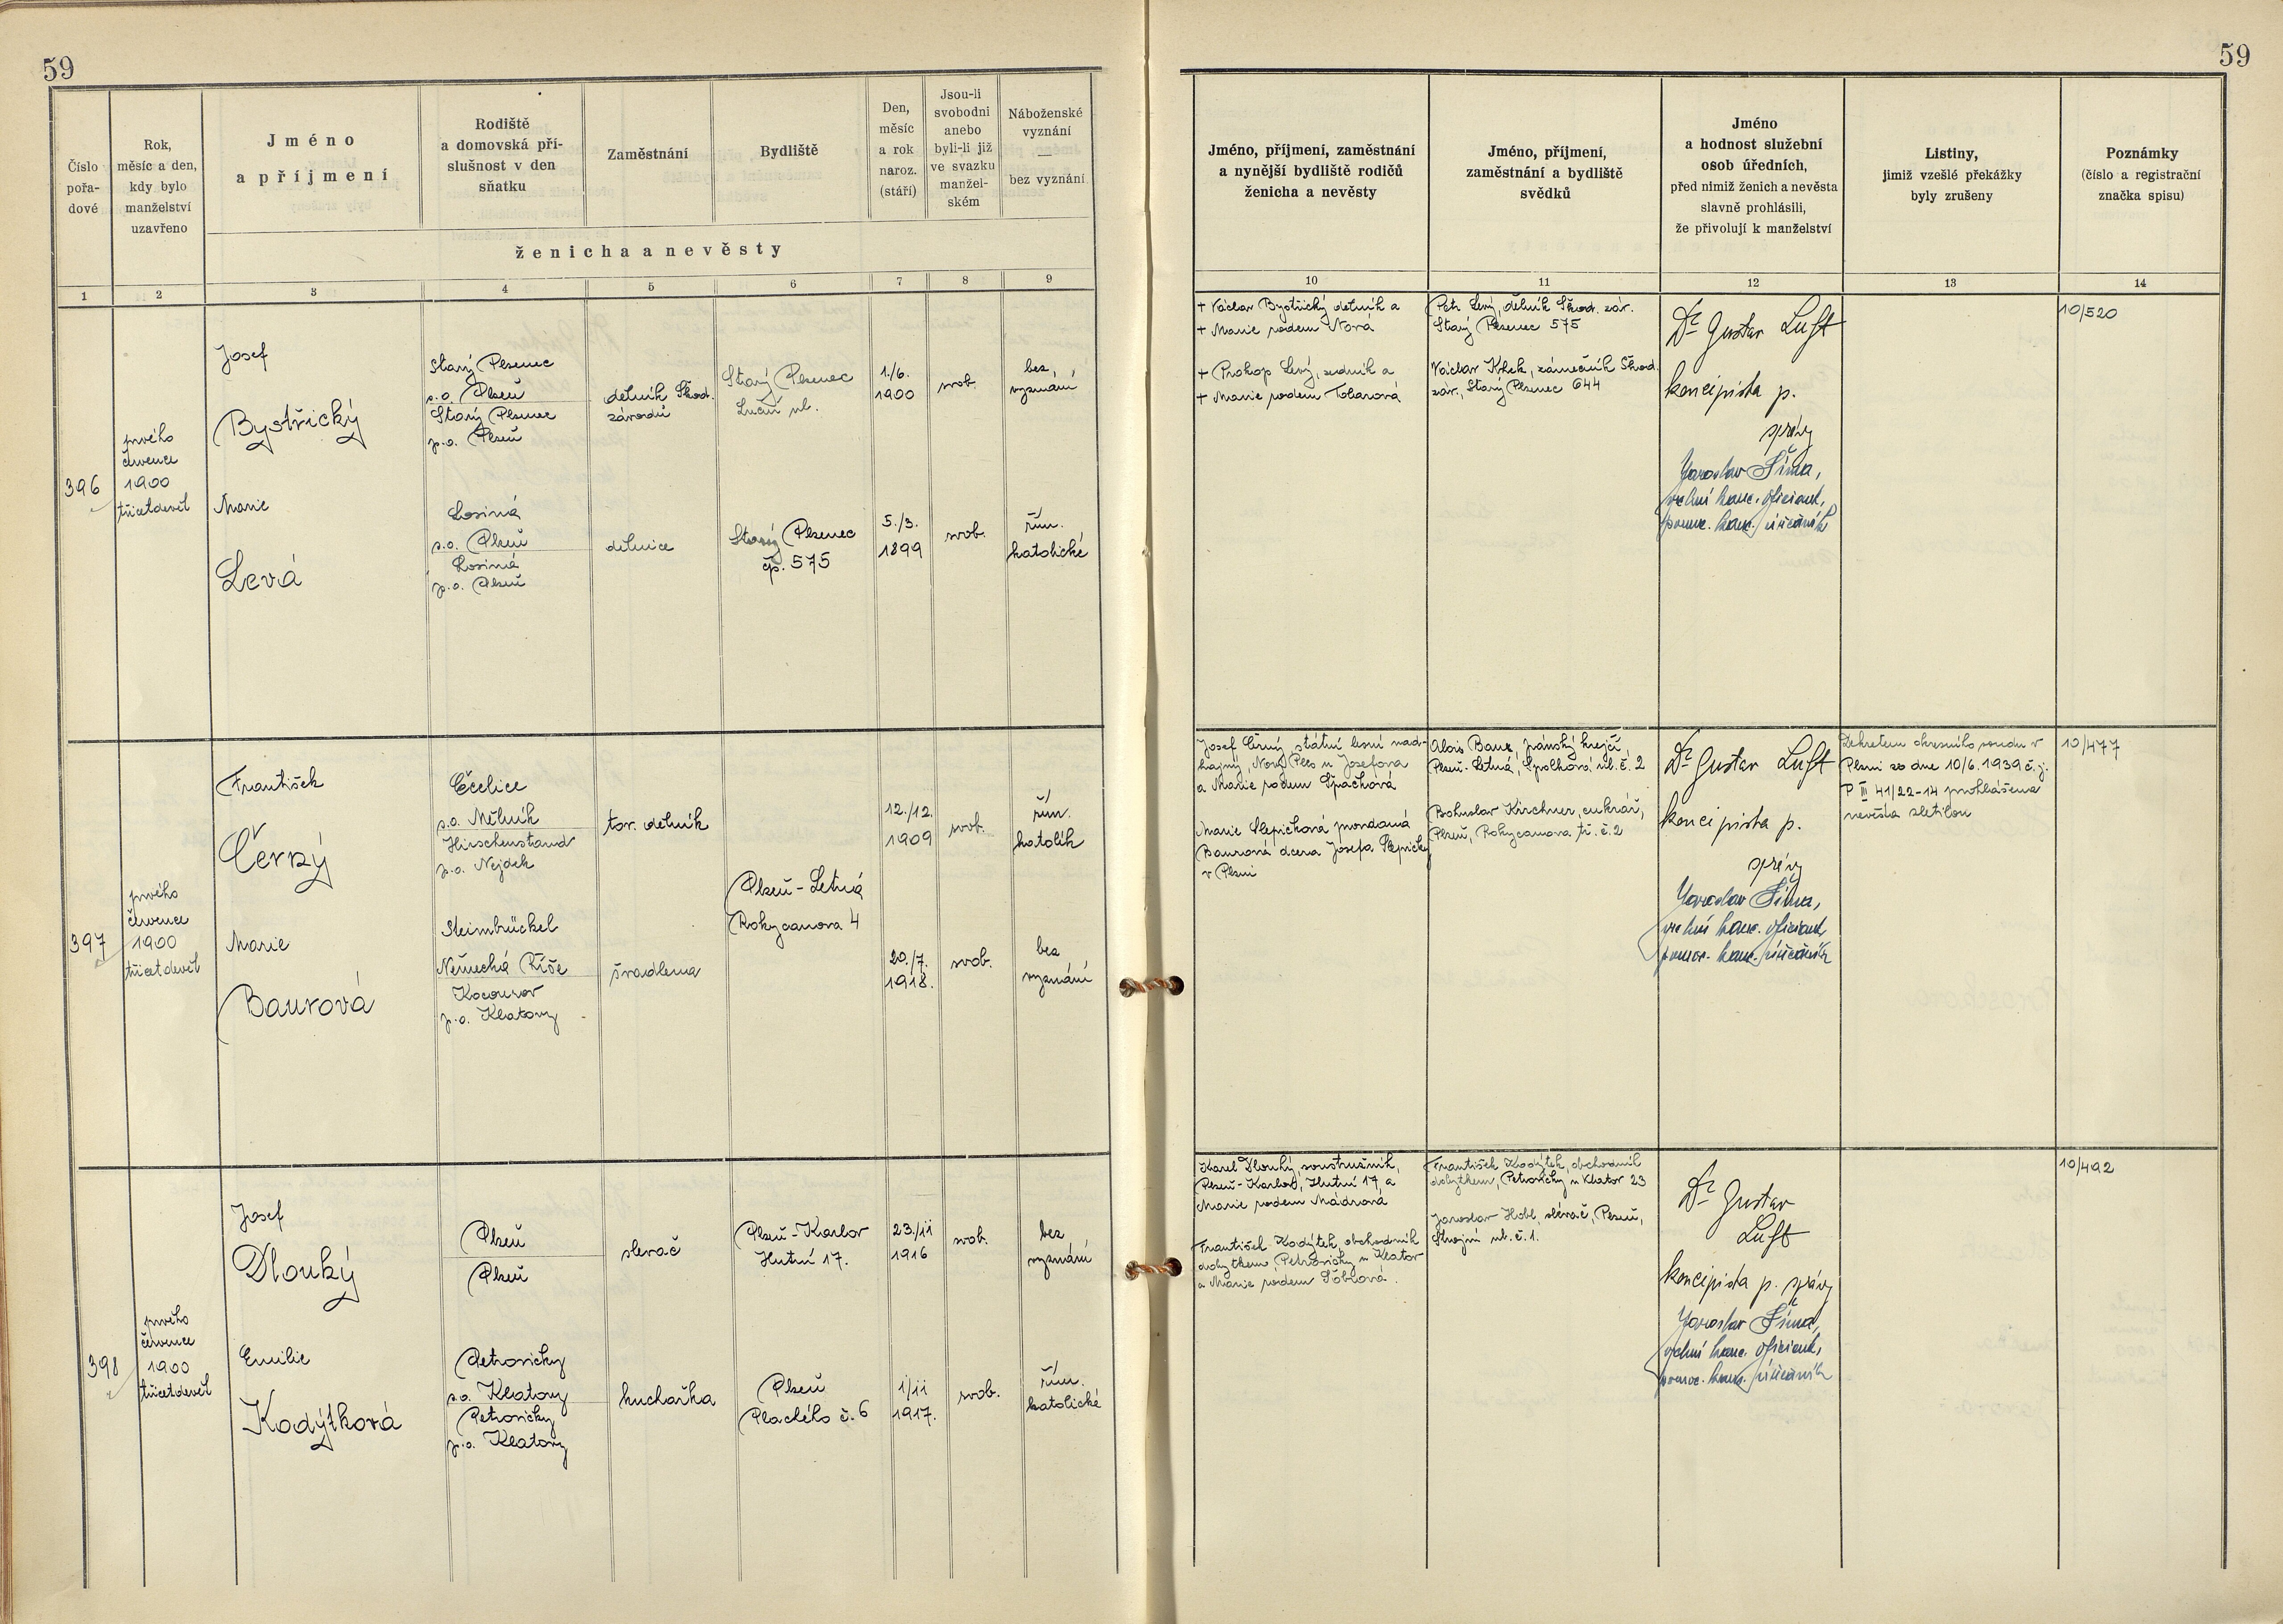 59
59
Číslo
pořa-
dové
Rok,
měsíc a den,
kdy bylo
manželství
uzavřeno
Jméno
a příjmení
Rodiště
a domovská pří-
slušnost v den
sňatku
Zaměstnání
Bydliště
Den,
měsíc
a rok
naroz.
(stáří)
Jsou-li
svobodni
anebo
byli-li již
ve svazku
manžel-
ském
Náboženské
vyznání
—
bez vyznání
ženicha a nevěsty
1 2 3 4 5 6 7 8 9
Jméno, příjmení, zaměstnání
a nynější bydliště rodičů
ženicha a nevěsty
Jméno, příjmení,
zaměstnání a bydliště
svědků
Jméno
a hodnost služební
osob úředních,
před nimiž ženich a nevěsta
slavně prohlásili,
že přivolují k manželství
Listiny,
jimiž vzešlé překážky
byly zrušeny
Poznámky
(číslo a registrační
značka spisu)
10 11 12 13 14
396
prvého
července
1900
třicetdevět
Josef
Bystřický
Starý Plzenec
s.o. Plzeň
Starý Plzenec
p.o. Plzeň
dělník Škod.
závodů
Starý Plzenec
Luční ul.
1./6.
1900
svob.
bez
vyznání
Marie
Levá
Losiná
s.o. Plzeň
Losiná
p.o. Plzeň
dělnice
Starý Plzenec
čp. 575
5./3.
1899
svob.
řím.
katolické
+ Václav Bystřický dělník a
+ Marie rodem Nová
+ Prokop Levý, zedník a
+ Marie rodem
Petr Levý, dělník Škod. záv.
Starý Plzenec 575
Václav Krbek, zámečník Škod.
záv., Starý Plzenec 644
Dr Gustav Luft
koncipista p.
správy
Jaroslav Šíma,
vrchní kanc. oficiant,
pomoc. kanc. úředník
10/520
397
prvého
července
1900
třicetdevět
František
Černý
Ečelice
s.o. Mělník
Hirschenstand
p.o. Nejdek
tov. dělník
12./12.
1909
svob.
řím.
katolík
Plzeň-Letná
Rokycanova 4
Marie
Baurová
Steinbrückel
Německá Říše
Kocourov
p.o. Klatovy
švadlena
20./7.
1918.
svob.
bez
vyznání
Josef Černý, státní lesní nad-
hajný, Nový Ples u Josefova
a Marie rodem Špačková
Marie Slepičková provdaná
Baurová dcera Josefa Slepičky
v Plzni
Alois Baur, pánský krejčí,
Plzeň-Letná, Spolková ul. č. 2
Bohuslav Kirchner, cukrář,
Plzeň, Rokycanova tř. č. 2
Dr Gustav Luft
koncipista p.
správy
Jaroslav Šíma,
vrchní kanc. oficiant
pomoc. kanc. úředník
Dekretem okresního soudu v
Plzni ze dne 10/6. 1939 č. j.
P III 41/22-14 prohlášena
nevěsta zletilou
10/477
398
prvého
července
1900
třicetdevět
Josef
Dlouhý
Plzeň
Plzeň
slevač
Plzeň-Karlov
Hutní 17.
23./ii
1916
svob.
bez
vyznání
Emilie
Kodýtková
Petrovičky
s.o. Klatovy
Petrovičky
p.o. Klatovy
kuchařka
Plzeň
Plachého č. 6
1/ii
1917.
svob.
řím.
katolické
Karel Dlouhý, soustružník,
Plzeň-Karlov, Hutní 17, a
Marie rodem Mádrová
František Kodýtek, obchodník
dobytkem, Petrovičky u Klatov
a Marie rodem
František Kodýtek, obchodník
dobytkem, Petrovičky u Klatov 23
Jaroslav Hobl, slévač, Plzeň,
Strojní ul. č. 1.
Dr Gustav
Luft
koncipista p. správy
Jaroslav Šíma,
vrchní kanc. oficiant,
pomoc. kanc. úředník
10/492